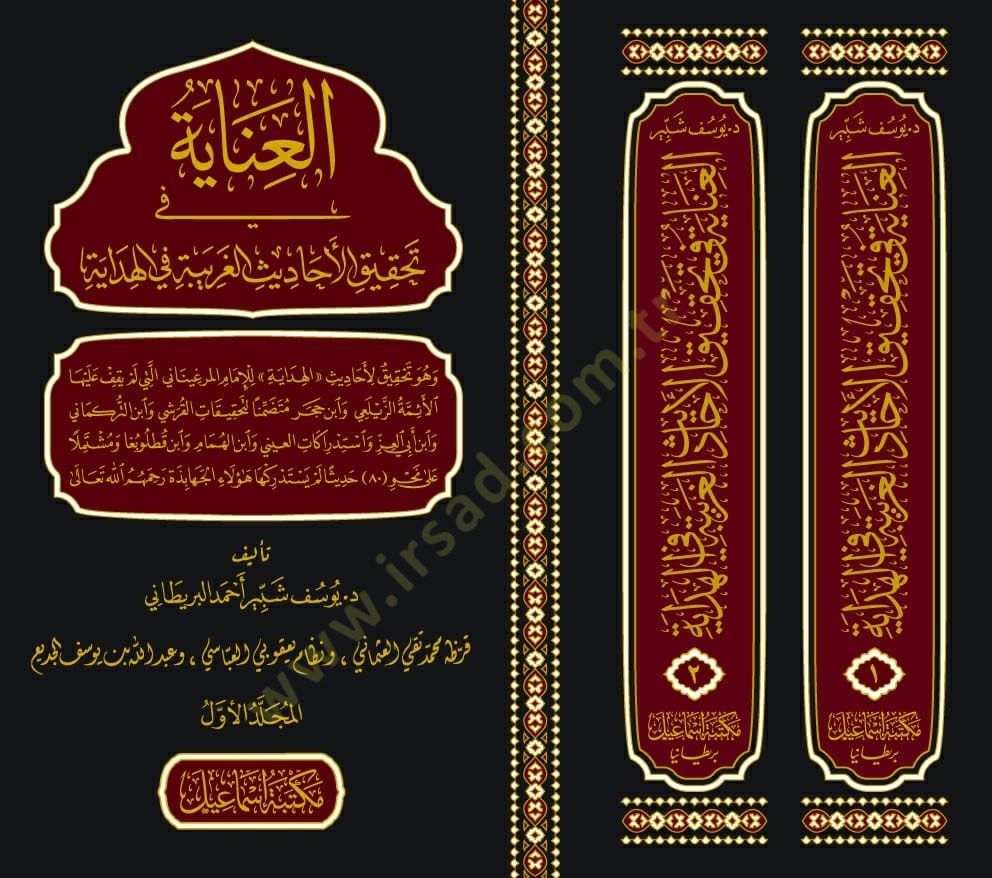 العِنَايَةُ
في
تَحْقِيقِ الأَحَادِيثِ الغَرِيبَةِ فِي الهِدَايَةِ
وَهُوَ تَحْقِيقٌ لِأَحَادِيثِ «الهِدَايَةِ» لِلْإِمَامِ المرغينَاني الَّتِي لَمْ يَقِفْ عَلَيْهَا
الأَئِمَّةُ الزَّيْلَعِي وَابن حَجَر مُتَضَمِّنًا لِتَحْقِيقَاتِ القُرَشِي وَابن التُّركمَاني
وَابن أَبي العِزِ وَاسْتِدْرَاكَاتِ العيني وَابن الهُمَام وَابن قُطْلُوبُغَا وَمُشْتَمِلًا
عَلى نَحْوِ (٨٠) حَدِيثًا لَمْ يَسْتَدْرِكْهَا هَؤُلَاءِ الجَهَابِذَة رَحِمَهُمُ اللّٰه تَعَالَىٰ
تأليف
د. يُوسُف شَبِّير أَحْمَد البريطَانِي
قرظه محمد تقي العثماني ، ونظام يعقوبي العبّاسي ، وعبد الله بن يوسف الجديع
المُجَلَّدُ الأَوَّلُ
مَكْتَبَةُ إِسْمَاعِيل
د. يُوسُف شَبِّير
العِنَايَة فِي تَحْقِيقِ الأَحَادِيثِ الغَرِيبَةِ فِي الهِدَايَةِ
٢
مَكْتَبَة إِسْمَاعِيل
بريطانيا
د. يُوسُف شَبِّير
العِنَايَة فِي تَحْقِيقِ الأَحَادِيثِ الغَرِيبَةِ فِي الهِدَايَةِ
١
مَكْتَبَة إِسْمَاعِيل
بريطانيا
www.irsad.com.tr